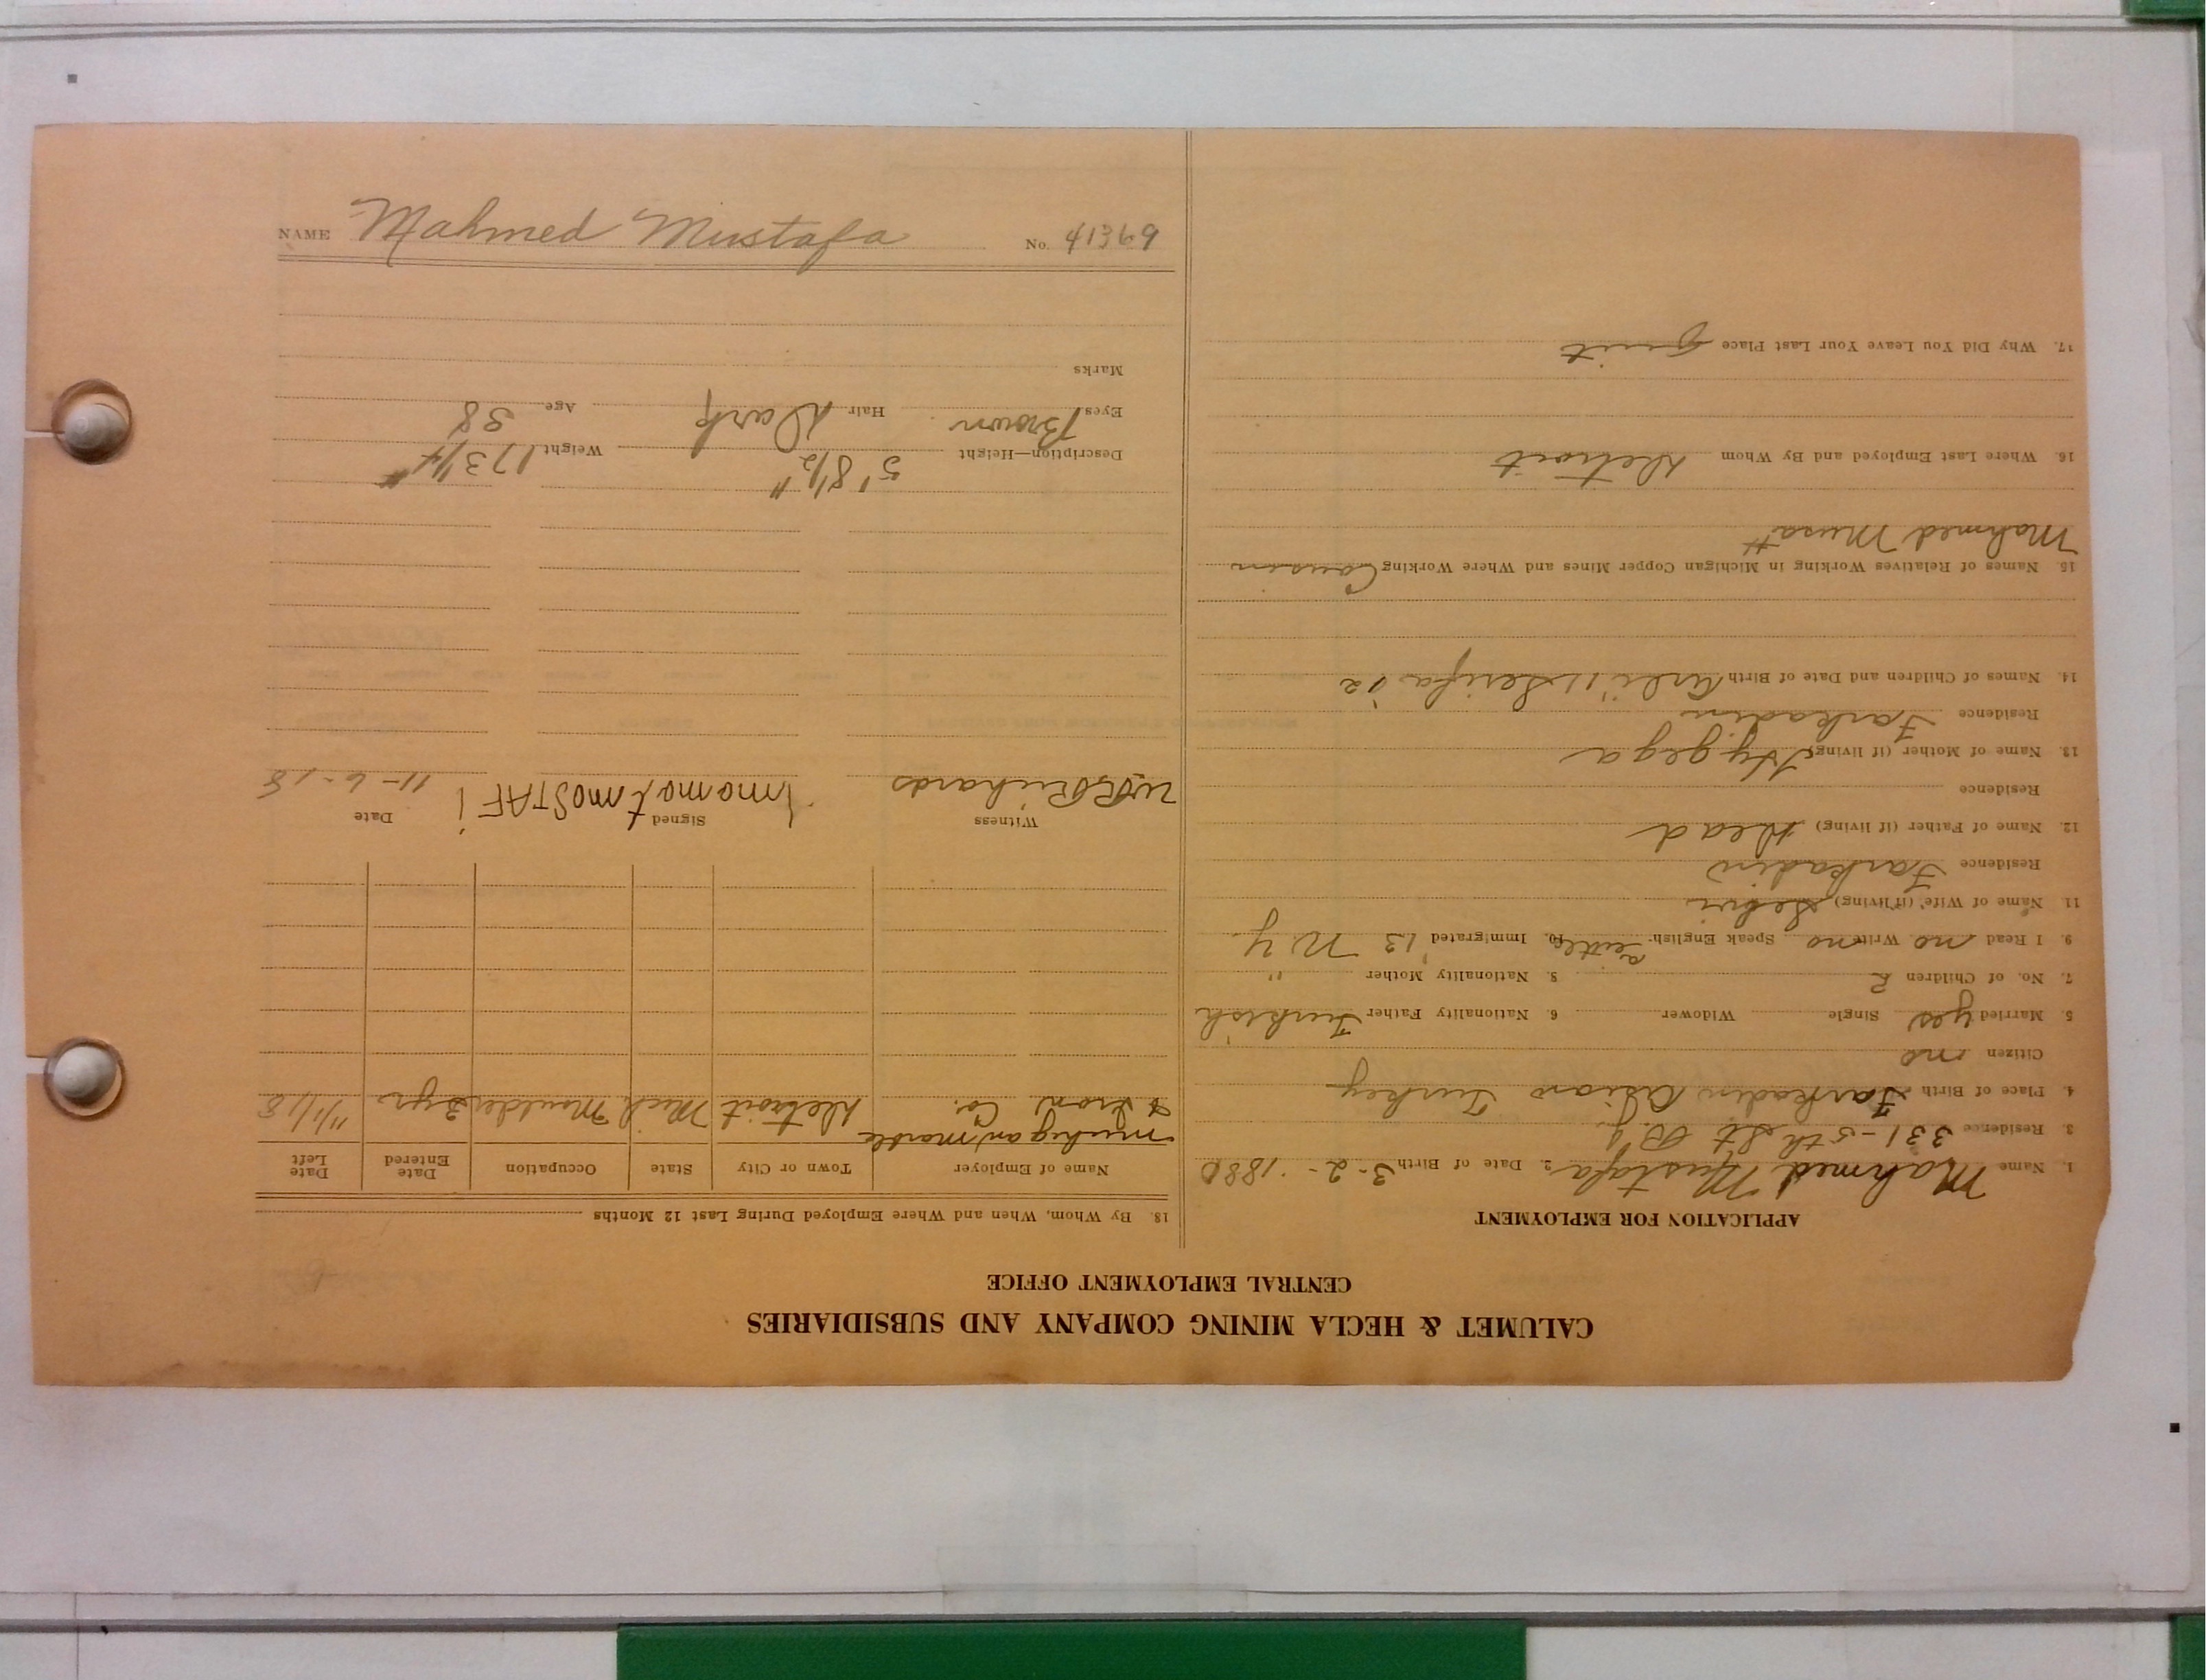 CALUMET & HECLA MINING COMPANY AND SUBSIDIARIES
CENTRAL EMPLOYMENT OFFICE
APPLICATION FOR EMPLOYMENT
1. Name Mahmed Mustafa 2. Date of Birth 3-2-1880
3. Residence 331-5th St
4. Place of Birth Farkadin Asian Turkey
Citizen no
5. Married yes Single Widower 6. Nationality Father Turkish
7. No. of Children 2 8. Nationality Mother "
9. I Read no Write no Speak English a little 10. Immigrated '13 N Y
11. Name of Wife (if living) Sebri
Residence Farkadin
12. Name of Father (if living) Dead
Residence
13. Name of Mother (if living) Hygega
Residence Farkadin
14. Names of Children and Date of Birth Arli '11 Serifa '02
15. Names of Relatives Working in Michigan Copper Mines and Where Working Cousin
Mahmed Musa
16. Where Last Employed and By Whom Detroit
17. Why Did You Leave Your Last Place quit
18. By Whom, When and Where Employed During Last 12 Months
Name of Employer Town or City State Occupation Date Entered Date Left
Michigan Mantle
& Iron Co. Detroit Mich Moulder 3 yrs 11/1/18
Witness Signed Date
W.R. Richards mamat moSTAF 11-6-18
Description—Height 5' 8 1/2" Weight 173 1/4 #
Eyes Brown Hair Dark Age 38
Marks
NAME Mahmed Mustafa No. 41369